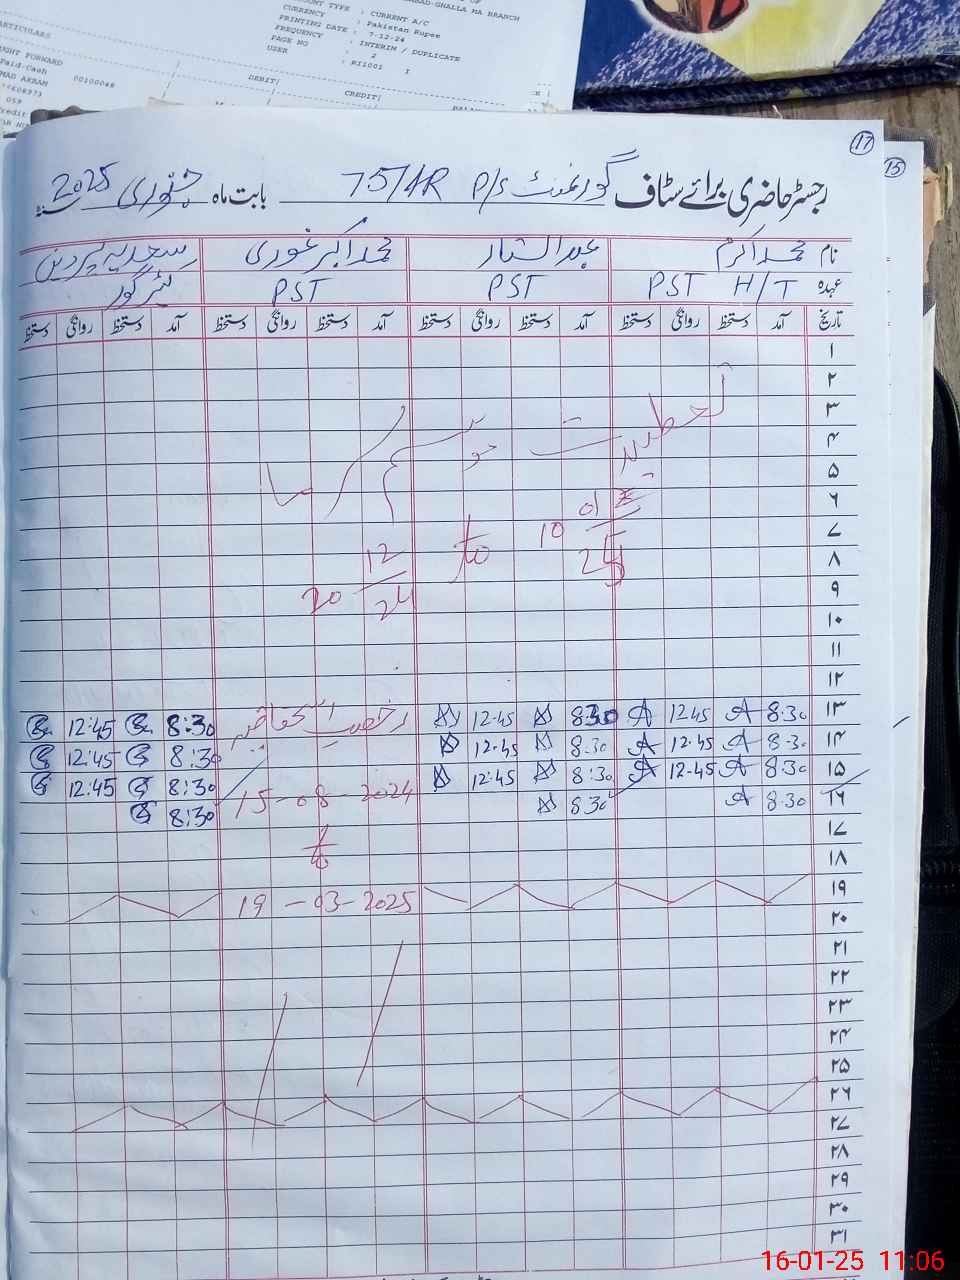 ABAD-GHALLA MA BRANCH
ACCOUNT TYPE : CURRENT A/C
CURRENCY : Pakistan Rupee
PRINTING DATE : 7-12-24
FREQUENCY : INTERIM / DUPLICATE
PAGE NO : 2
USER : RI1001 I
PARTICULARS DEBIT| CREDIT|
UGHT FORWARD
Paid-Cash 00100046
MAD AKRAM
17
15
رجسٹر حاضری برائے سٹاف گورنمنٹ P/S 75/4R بابت ماہ جنوری 2025
نام محمد اکرم عبدالستار محمد اکبر غوری سعدیہ پروین
عہدہ PST H/T PST PST کئیر گور
تاریخ آمد دستخط روانگی دستخط آمد دستخط روانگی دستخط آمد دستخط روانگی دستخط آمد دستخط روانگی دستخط
۱
۲
۳
۴
۵
۶
۷
۸
۹
۱۰
۱۱
۱۲
تعطیلات موسم سرما
20 12/24 to 10 01/25
۱۳ 8:30 12:45 8:30 12:45 رخصت 8:30 12:45
۱۴ 8:30 12:45 8:30 12:45 8:30 12:45
۱۵ 8:30 12:45 8:30 12:45 15-08-2024 8:30 12:45
۱۶ 8:30 8:30 8:30
۱۷ to
۱۸
۱۹ 19-03-2025
۲۰
۲۱
۲۲
۲۳
۲۴
۲۵
۲۶
۲۷
۲۸
۲۹
۳۰
۳۱
16-01-25 11:06